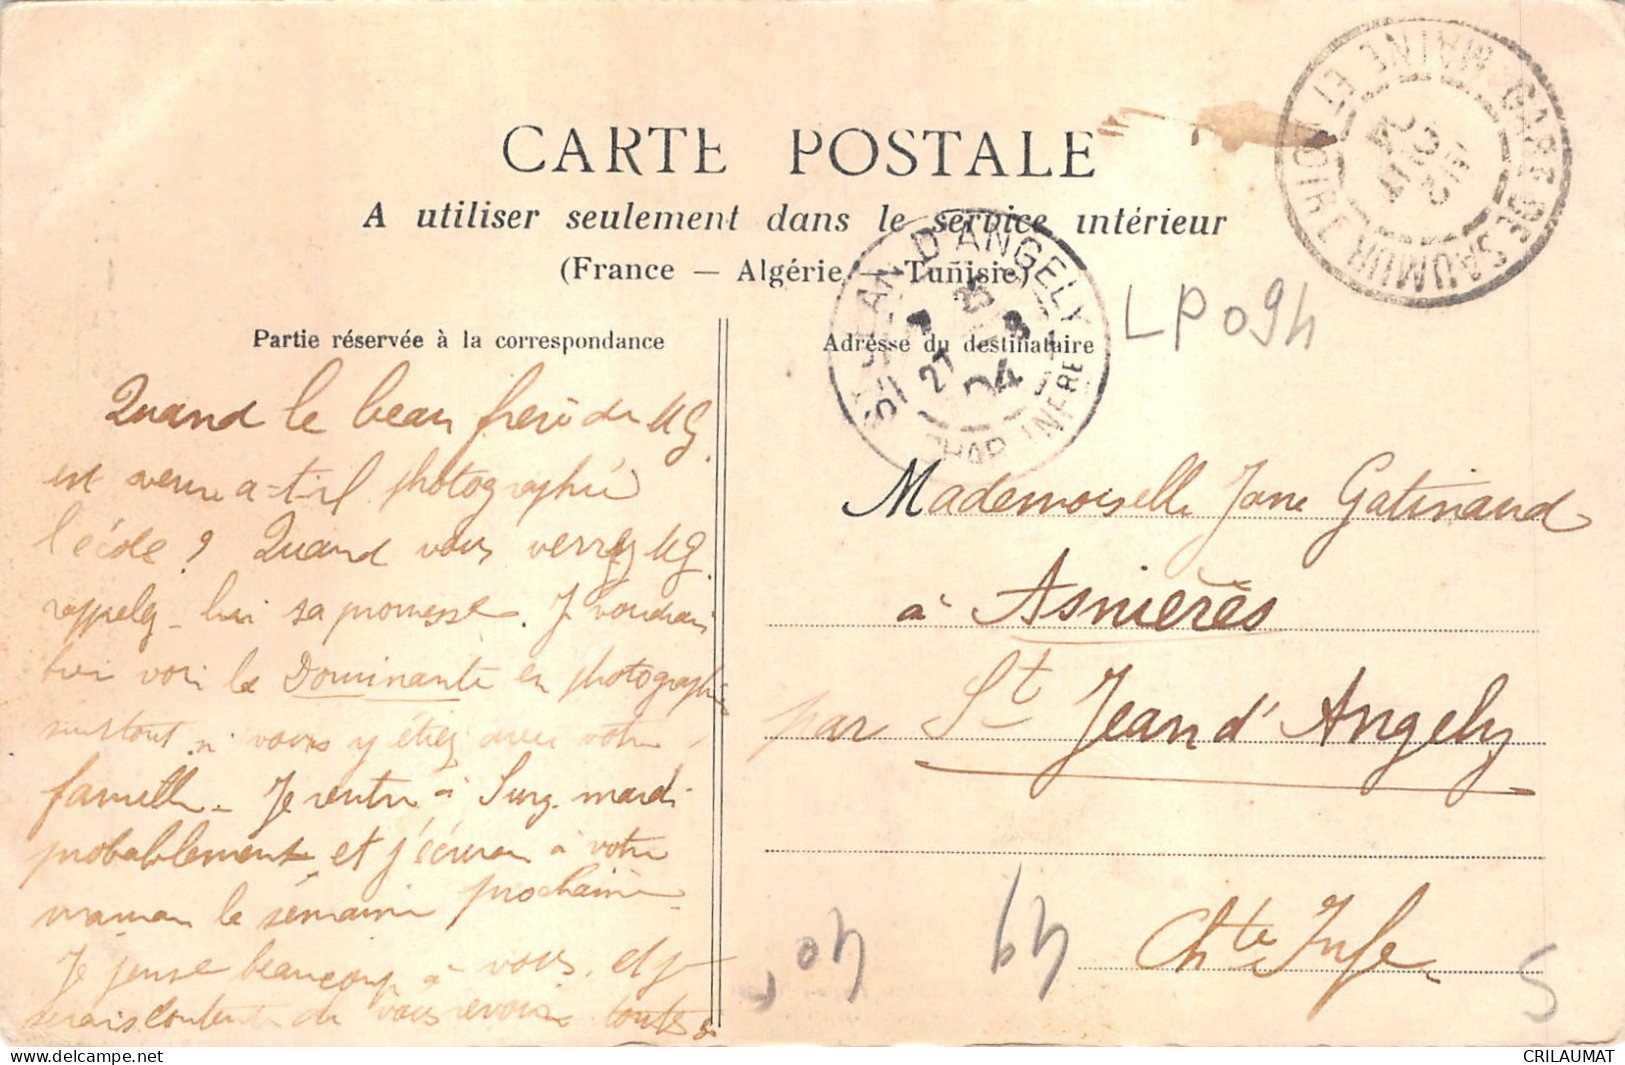 CARTE POSTALE
A utiliser seulement dans le service intérieur
(France — Algérie — Tunisie)
Partie réservée à la correspondance
Adresse du destinataire
GARE DE SAUMUR
MAINE ET LOIRE
ST JEAN D'ANGELY
27 8
04
CHAR. INFRE
LP094
Quand le beau frère de
est venu a-t-il photographié
l'école ? Quand vous verrez
rappelez-lui sa promesse. Je voudrais
bien voir la Dominante en photographie
surtout si vous y étiez avec votre
famille. Je rentre à Surg. mardi
probablement et j'écrirai à votre
maman la semaine prochaine
Je pense beaucoup à vous, et je
serais contente de vous revoir toutes
Mademoiselle Jane Gatineaud
à Asnières
par St Jean d'Angely
Chte Infre
40F
49
5
CRILAUMAT